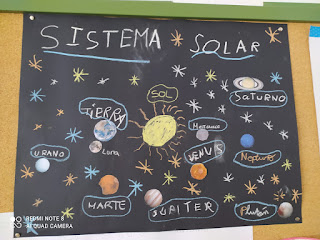 SISTEMA SOLAR
SOL
SATURNO
TIERRA
Mercurio
Luna
URANO
VENUS
Neptuno
MARTE
JÚPITER
Plutón
REDMI NOTE 8
AI QUAD CAMERA